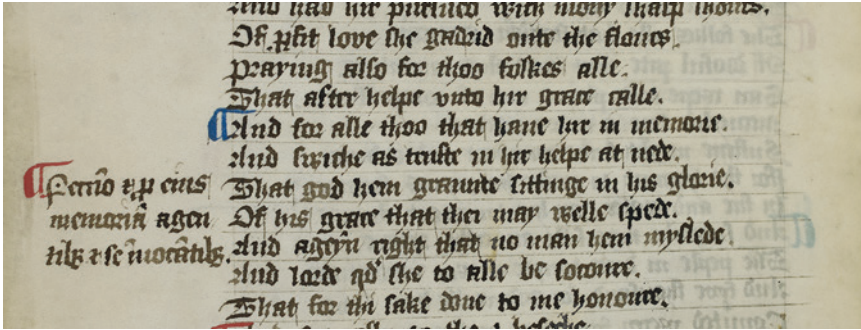 And had hir purtured with mony sharp shours.
Of p̱fit love she gadrid oute the floures.
Praying also for thoo folkes alle.
That after helpe vnto hir grace calle.
¶And for alle thoo that haue hir in memorie.
And swiche as truste in hir helpe at nede.
That god hem graunte sittinge in his glorie.
Of his grace that thei may welle spede.
And ageyn right that no man hem myslede.
And lorde qd she to alle be socoure.
That for thi sake done to me honoure.
¶
memoriā agen
tibꝫ ⁊ se īuocātibꝫ.